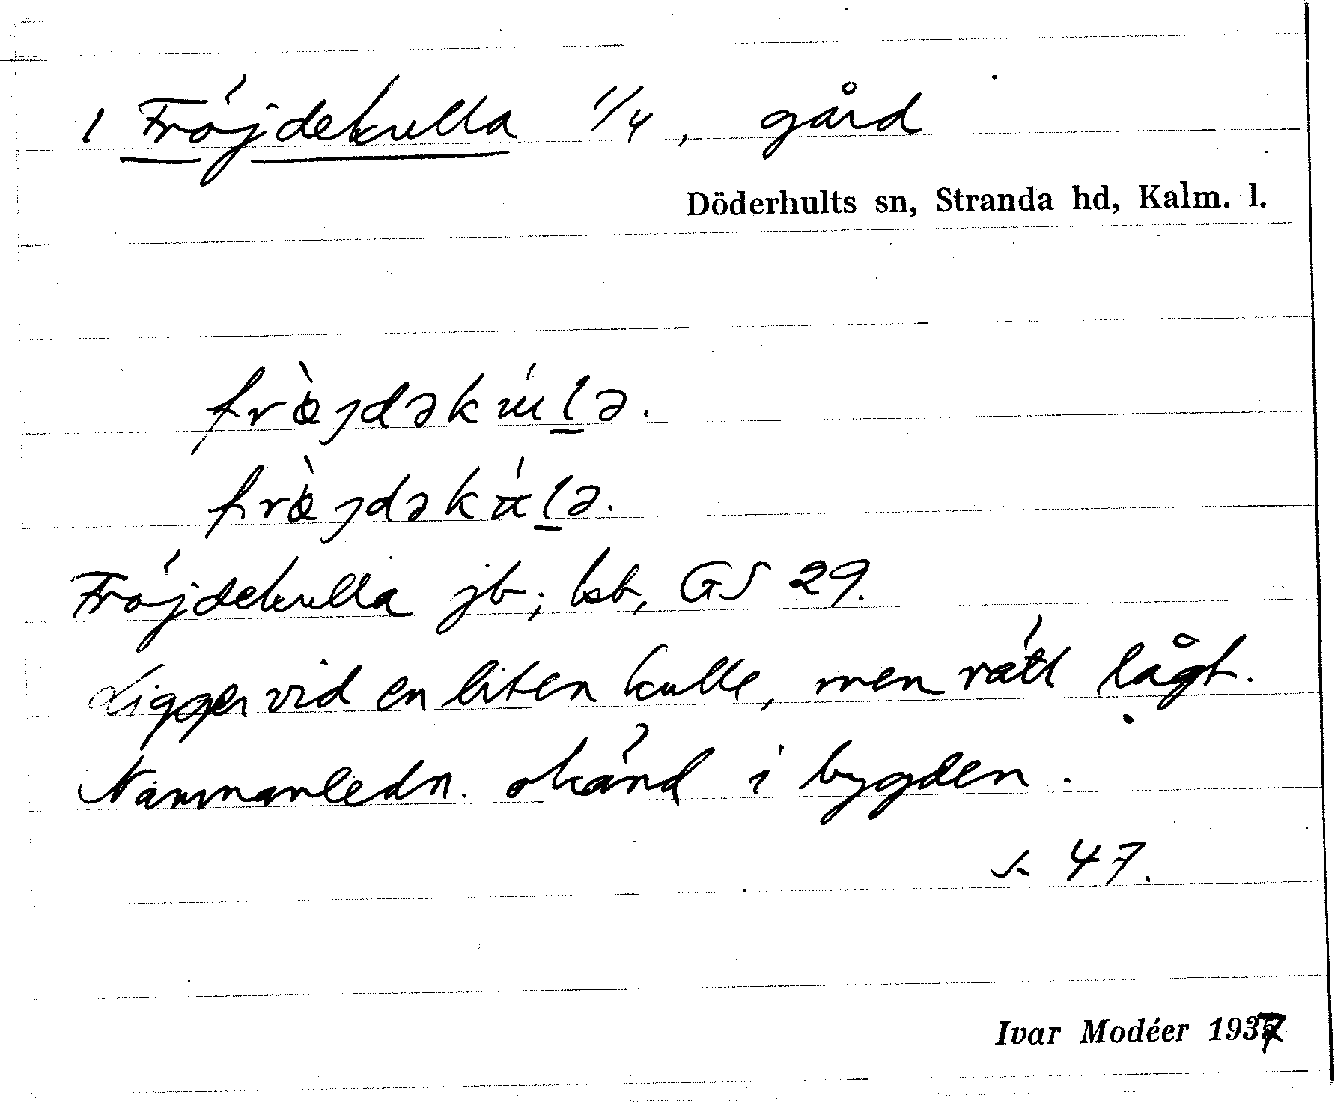 1 Fröjdekulla 1/4, gård
Döderhults sn, Stranda hd, Kalm. l.
frœ̀jdəkúlə.
frœ̀jdəkálə.
Fröjdekulla jb; ksb, GS 29.
Ligger vid en liten kulle, men rätt lågt.
Namnanledn. okänd i bygden.
s. 47.
Ivar Modéer 1937